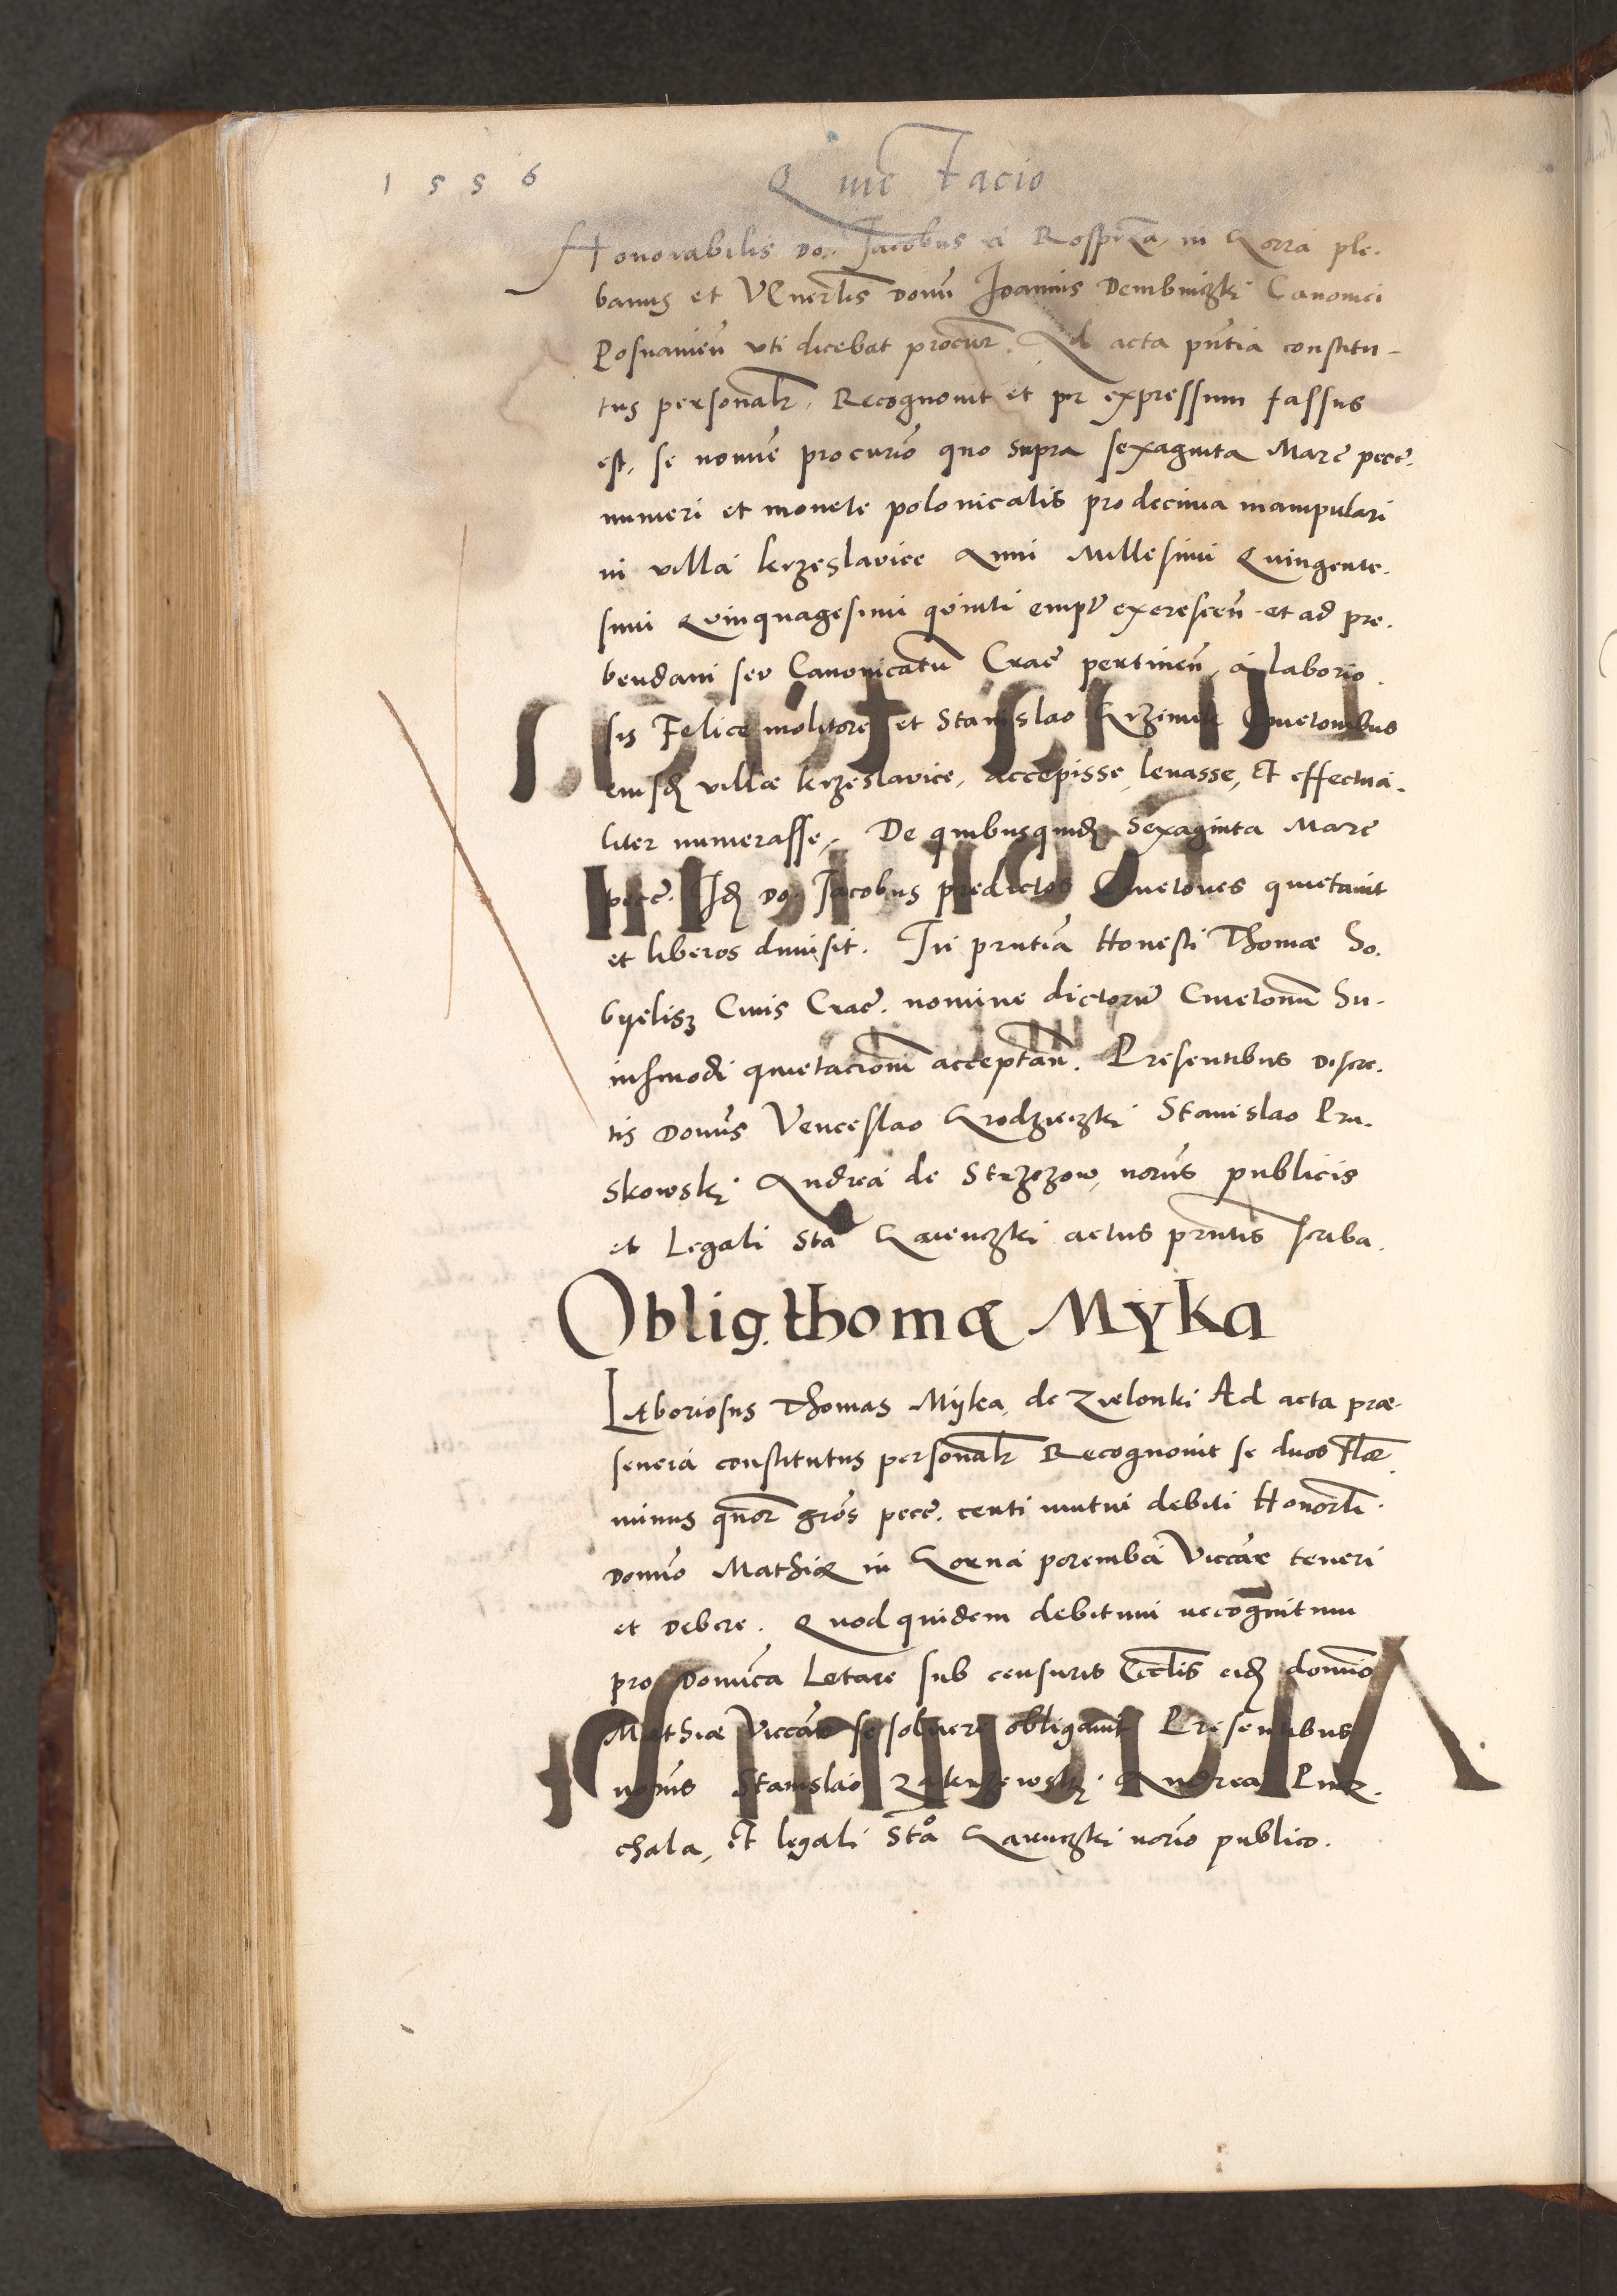 1556
Quietacio
Honorabilis Do. Jacobus a Rospcza, in Gorra ple-
banus et Venerlis Domi Joannis Dembniczki Canonici
Posnanien uti dicebat procur. Ad acta pntia constitu-
tus personalr. Recognovit et per expressum fassus
est, se nomine procurio quo supra sexaginta Marc pece.
numeri et monete polonicalis pro decima manipulari
in villa krzeslavice Anni Millesimi Quingente-
simi Quinquagesimi quinti emp excrescen et ad pre-
bendam seu Canonicatum Crac pertinen, a laborio-
sis Felice molitore et Stanislao Cmetonibus
eiusd villae krzeslavice, accepisse, levasse, et effectua-
liter numerasse. De quibusquid Sexaginta Marc
pece. Id Do. Jacobus predictos Cmetones quietavit
et liberos dimisit. In prntia Honesti Thomae So-
byelisz Civis Crac. nomine dictoru Cmetonum Hu-
iusmodi quietacionem acceptan. Presentibus discre-
tis Domis Venceslao Grodzieczki Stanislao Pru-
skowski Andrea de Strzezow, noriis publicis
et Legali Sta Garenczki actus prntis scriba.
Oblig. thomae Myka
Laboriosus Thomas Myka, de Zielonki Ad acta prae-
sencia constitutus personalr Recognovit se duos Flor
minus quor gros pece. centi mutui debiti Honorli
Domino Mathiae in Gorna poremba Viccar teneri
et debere. Quod quidem debitum recognitum
pro Domica Letare sub censuris Ecclis eid domino
Mathiae Viccario se solvere obligavit Presentibus
noriis Stanislao Zakrzewski Andrea
chala, et legali Sta Garenczki norio publico.